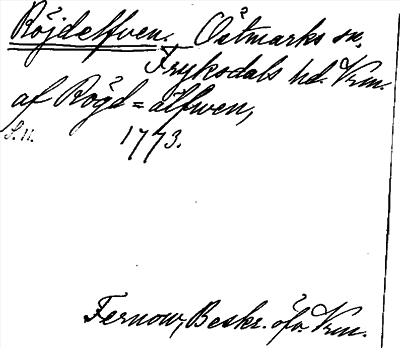 Röjdelfven. Östmarks sn,
Fryksdals hd. Vrm.
af Rögd=älfwen,
S. 11. 1773.
Fernow, Beskr. öfv. Vrm.